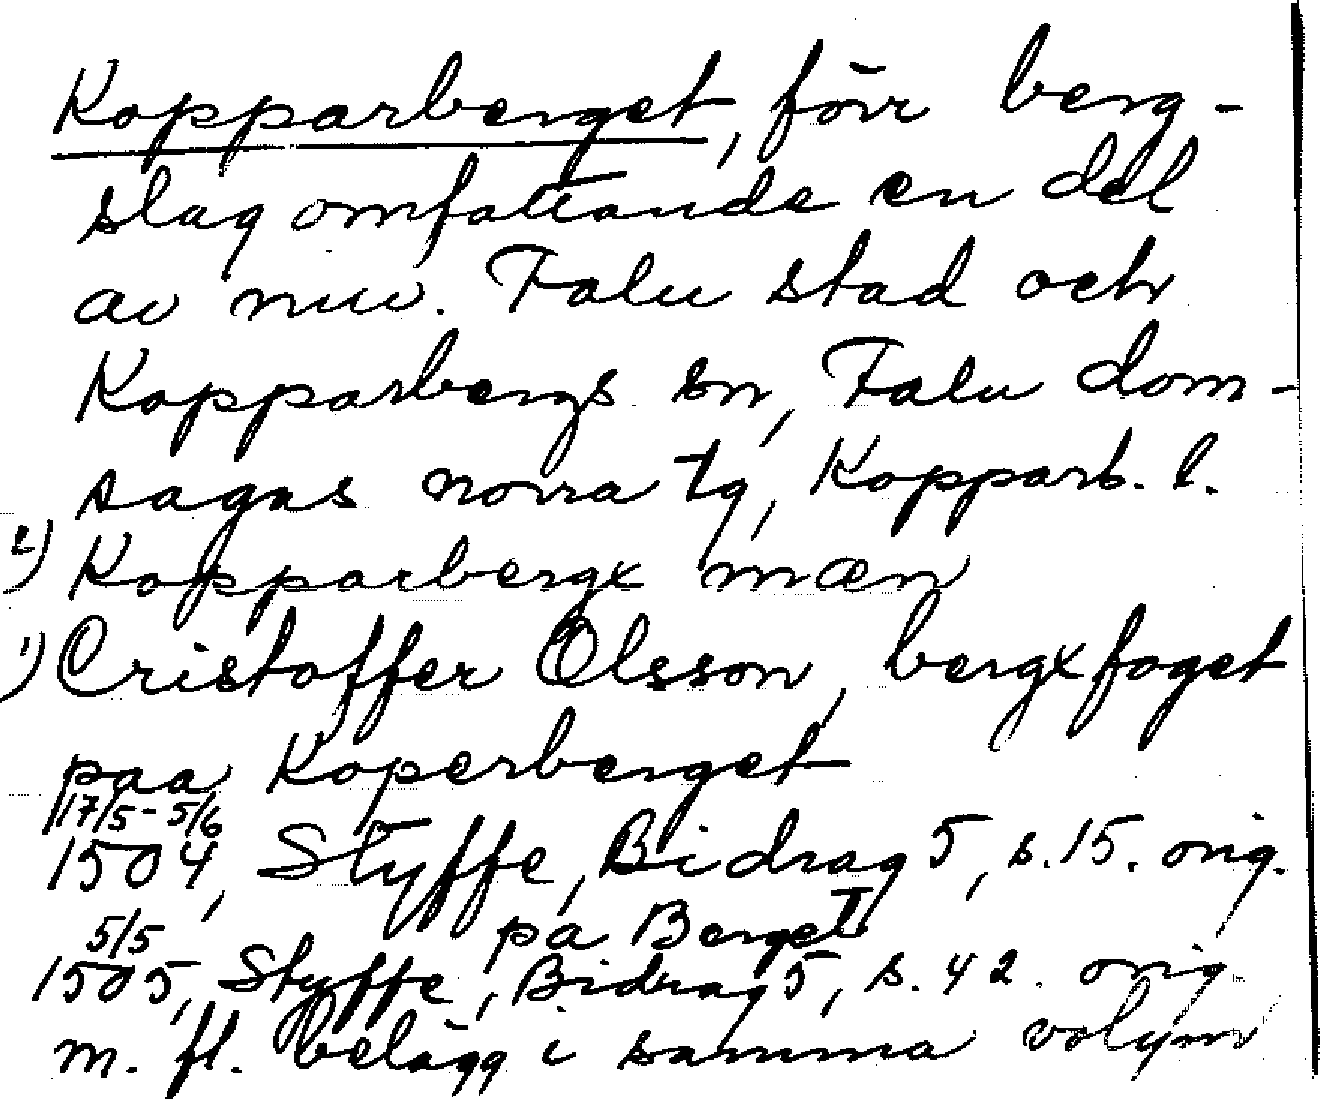 Kopparberget, förr berg-
slag omfattande en del
av nuv. Falu stad och
Kopparbergs sn, Falu dom-
sagas norra tg, Kopparb. l.
2) Kopparbergx mæn
1) Cristoffer Olsson, bergxfoget
paa Koperberget
17/5-5/6
1504, Styffe, Bidrag 5, s. 15. orig.
5/5 pa Berget
1505, Styffe, Bidrag 5, s. 42. orig
m. fl. belägg i samma volym